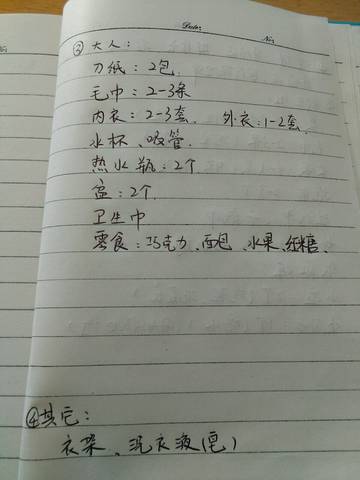 Date: No:
③ 大人：
刀纸：2包
毛巾：2-3条
内衣：2-3套. 外衣：1-2套.
水杯、吸管.
热水瓶：2个
盆：2个.
卫生巾
零食：巧克力、面包、水果、红糖、
④其它：
衣架、洗衣液(皂)